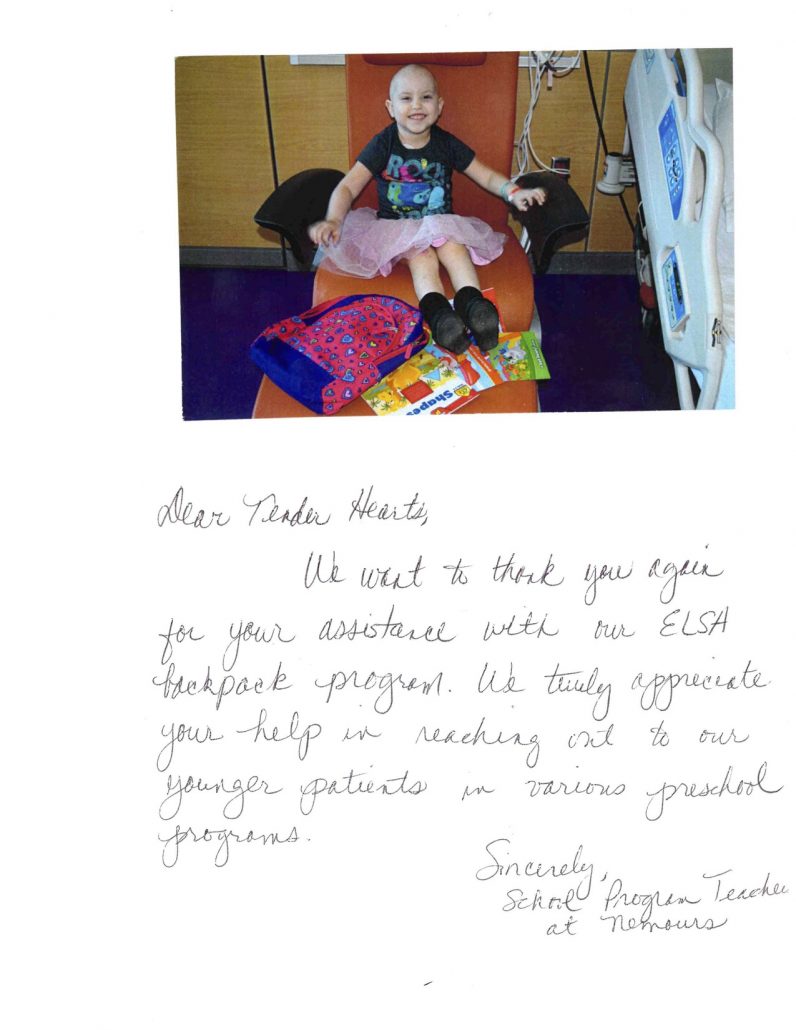 ROCK
Shapes
Dear Tender Hearts,
We want to thank you again
for your assistance with our ELSA
backpack program. We truly appreciate
your help in reaching out to our
younger patients in various preschool
programs.
Sincerely,
School Program Teacher
at Nemours